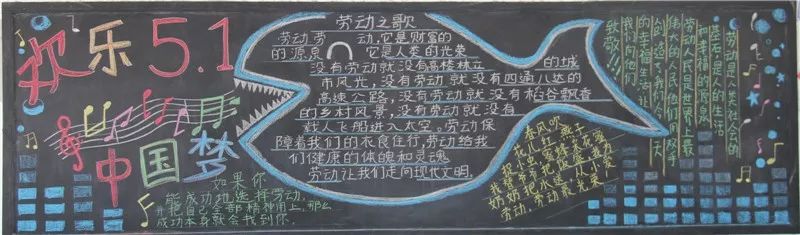 欢乐5.1
中国梦
如果你
能成功地选择劳动,
并把自己全部精神用上,那么
成功本身就会找到你.
劳动之歌
劳动劳动,它是财富的
的源泉 它是人类的光荣
没有劳动就没有高楼林立的城
市风光,没有劳动就没有四通八达的
高速公路,没有劳动就没有稻谷飘香
的乡村风景,没有劳动就没有
载人飞船进入太空。劳动保
障着我们的衣食住行,劳动给我
们健康的体魄和灵魂
劳动让我们走向现代文明.
春风吹
花儿红 燕子
捉虫蜜蜂采花蜜
我帮爷爷把饭盛,我为
奶奶把水送,从小爱
劳动,劳动最光荣!
劳动是人类社会的
基石,是人的生活
和幸福的源泉
劳动人民是世界上最
伟大的人民,他们用双手
创造了我们今天
的幸福生活,让
我们向他们
致敬!!